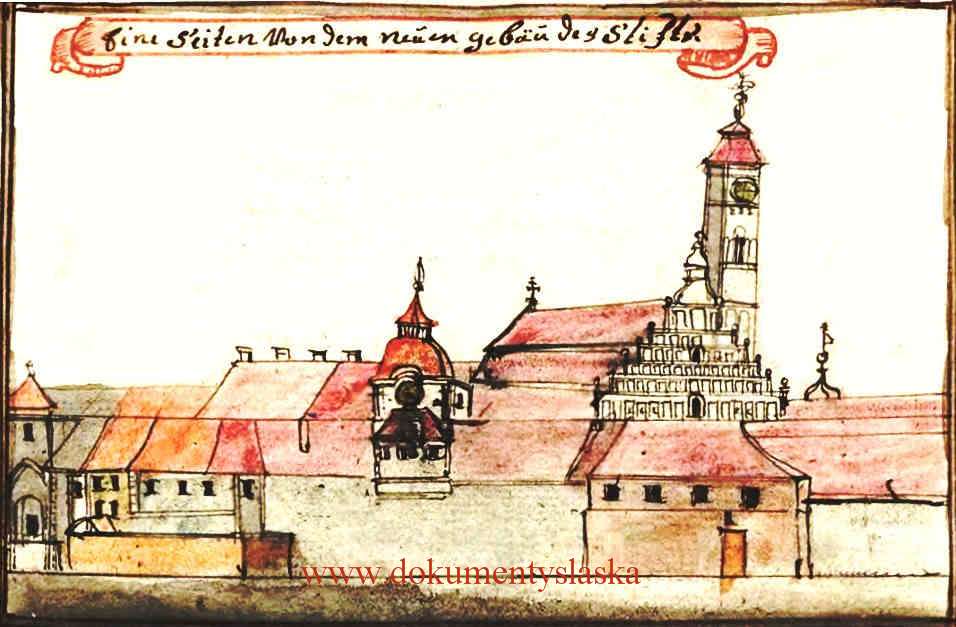 Eine Seiten Von dem neüen gebäü des Stiffts.
www.dokumentyslaska